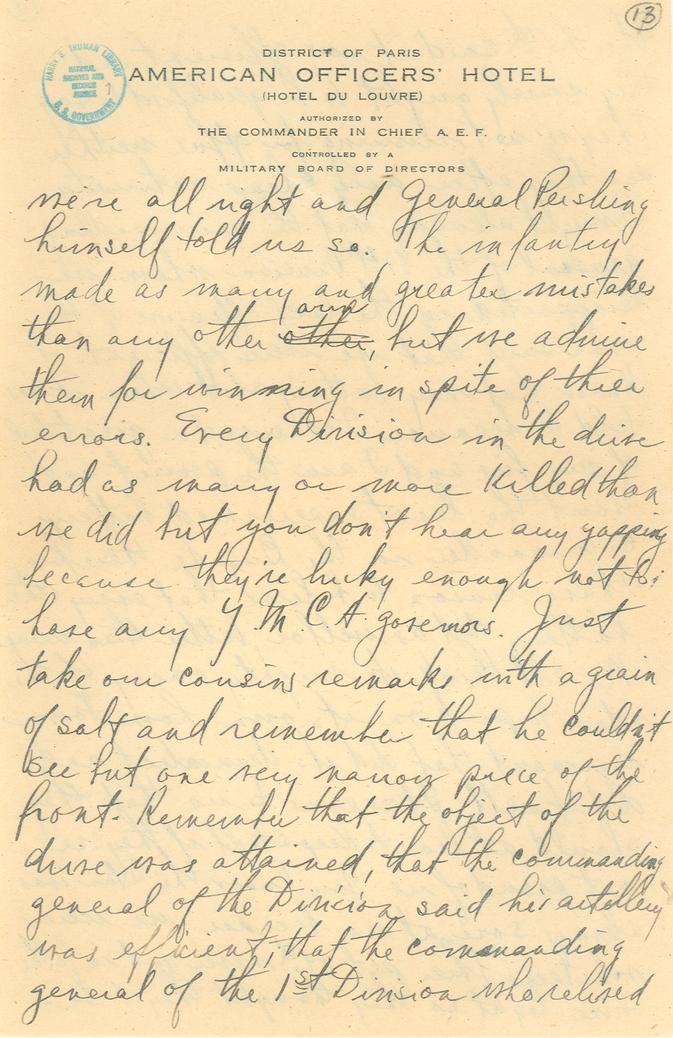 13
HARRY S. TRUMAN LIBRARY
NATIONAL
ARCHIVES AND
RECORDS
SERVICE
U. S. GOVERNMENT
DISTRICT OF PARIS
AMERICAN OFFICERS' HOTEL
(HOTEL DU LOUVRE)
AUTHORIZED BY
THE COMMANDER IN CHIEF A. E. F.
CONTROLLED BY A
MILITARY BOARD OF DIRECTORS
we're all right and General Pershing
himself told us so. The infantry
made as many and greater mistakes
arm
than any other other, but we admire
them for winning in spite of thier
errors. Every Division in the drive
had as many or more Killed than
we did but you don't hear any yapping
because they're lucky enough not to
have any Y.M.C.A. governors. Just
take our cousins remarks with a grain
of salt and remember that he couldn't
see but one very narrow piece of the
front. Remember that the object of the
drive was attained, that the commanding
general of the Division said his artillery
was efficient, that the commanding
general of the 1st Division who relived